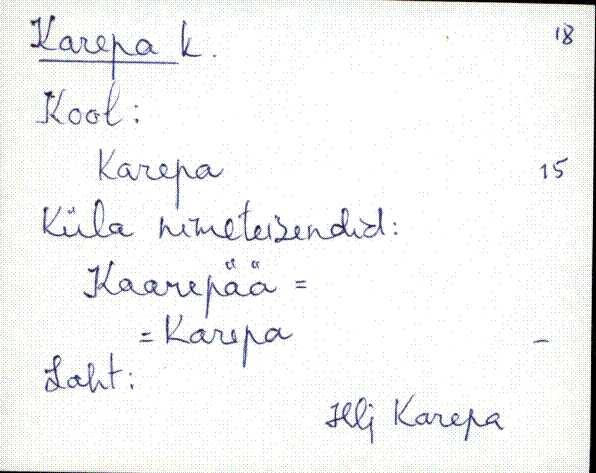 Karepa k. 18
Kool:
Karepa 15
Küla nimeteisendid:
Kaarepää =
= Karepa -
Laht:
Hlj Karepa